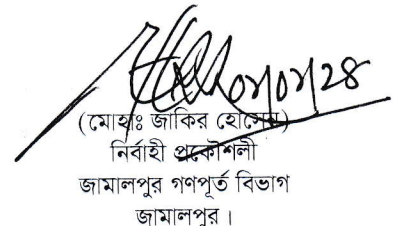 ০৭।০৭।২৪
(মোহাঃ জাকির হোসেন)
নির্বাহী প্রকৌশলী
জামালপুর গণপূর্ত বিভাগ
জামালপুর।